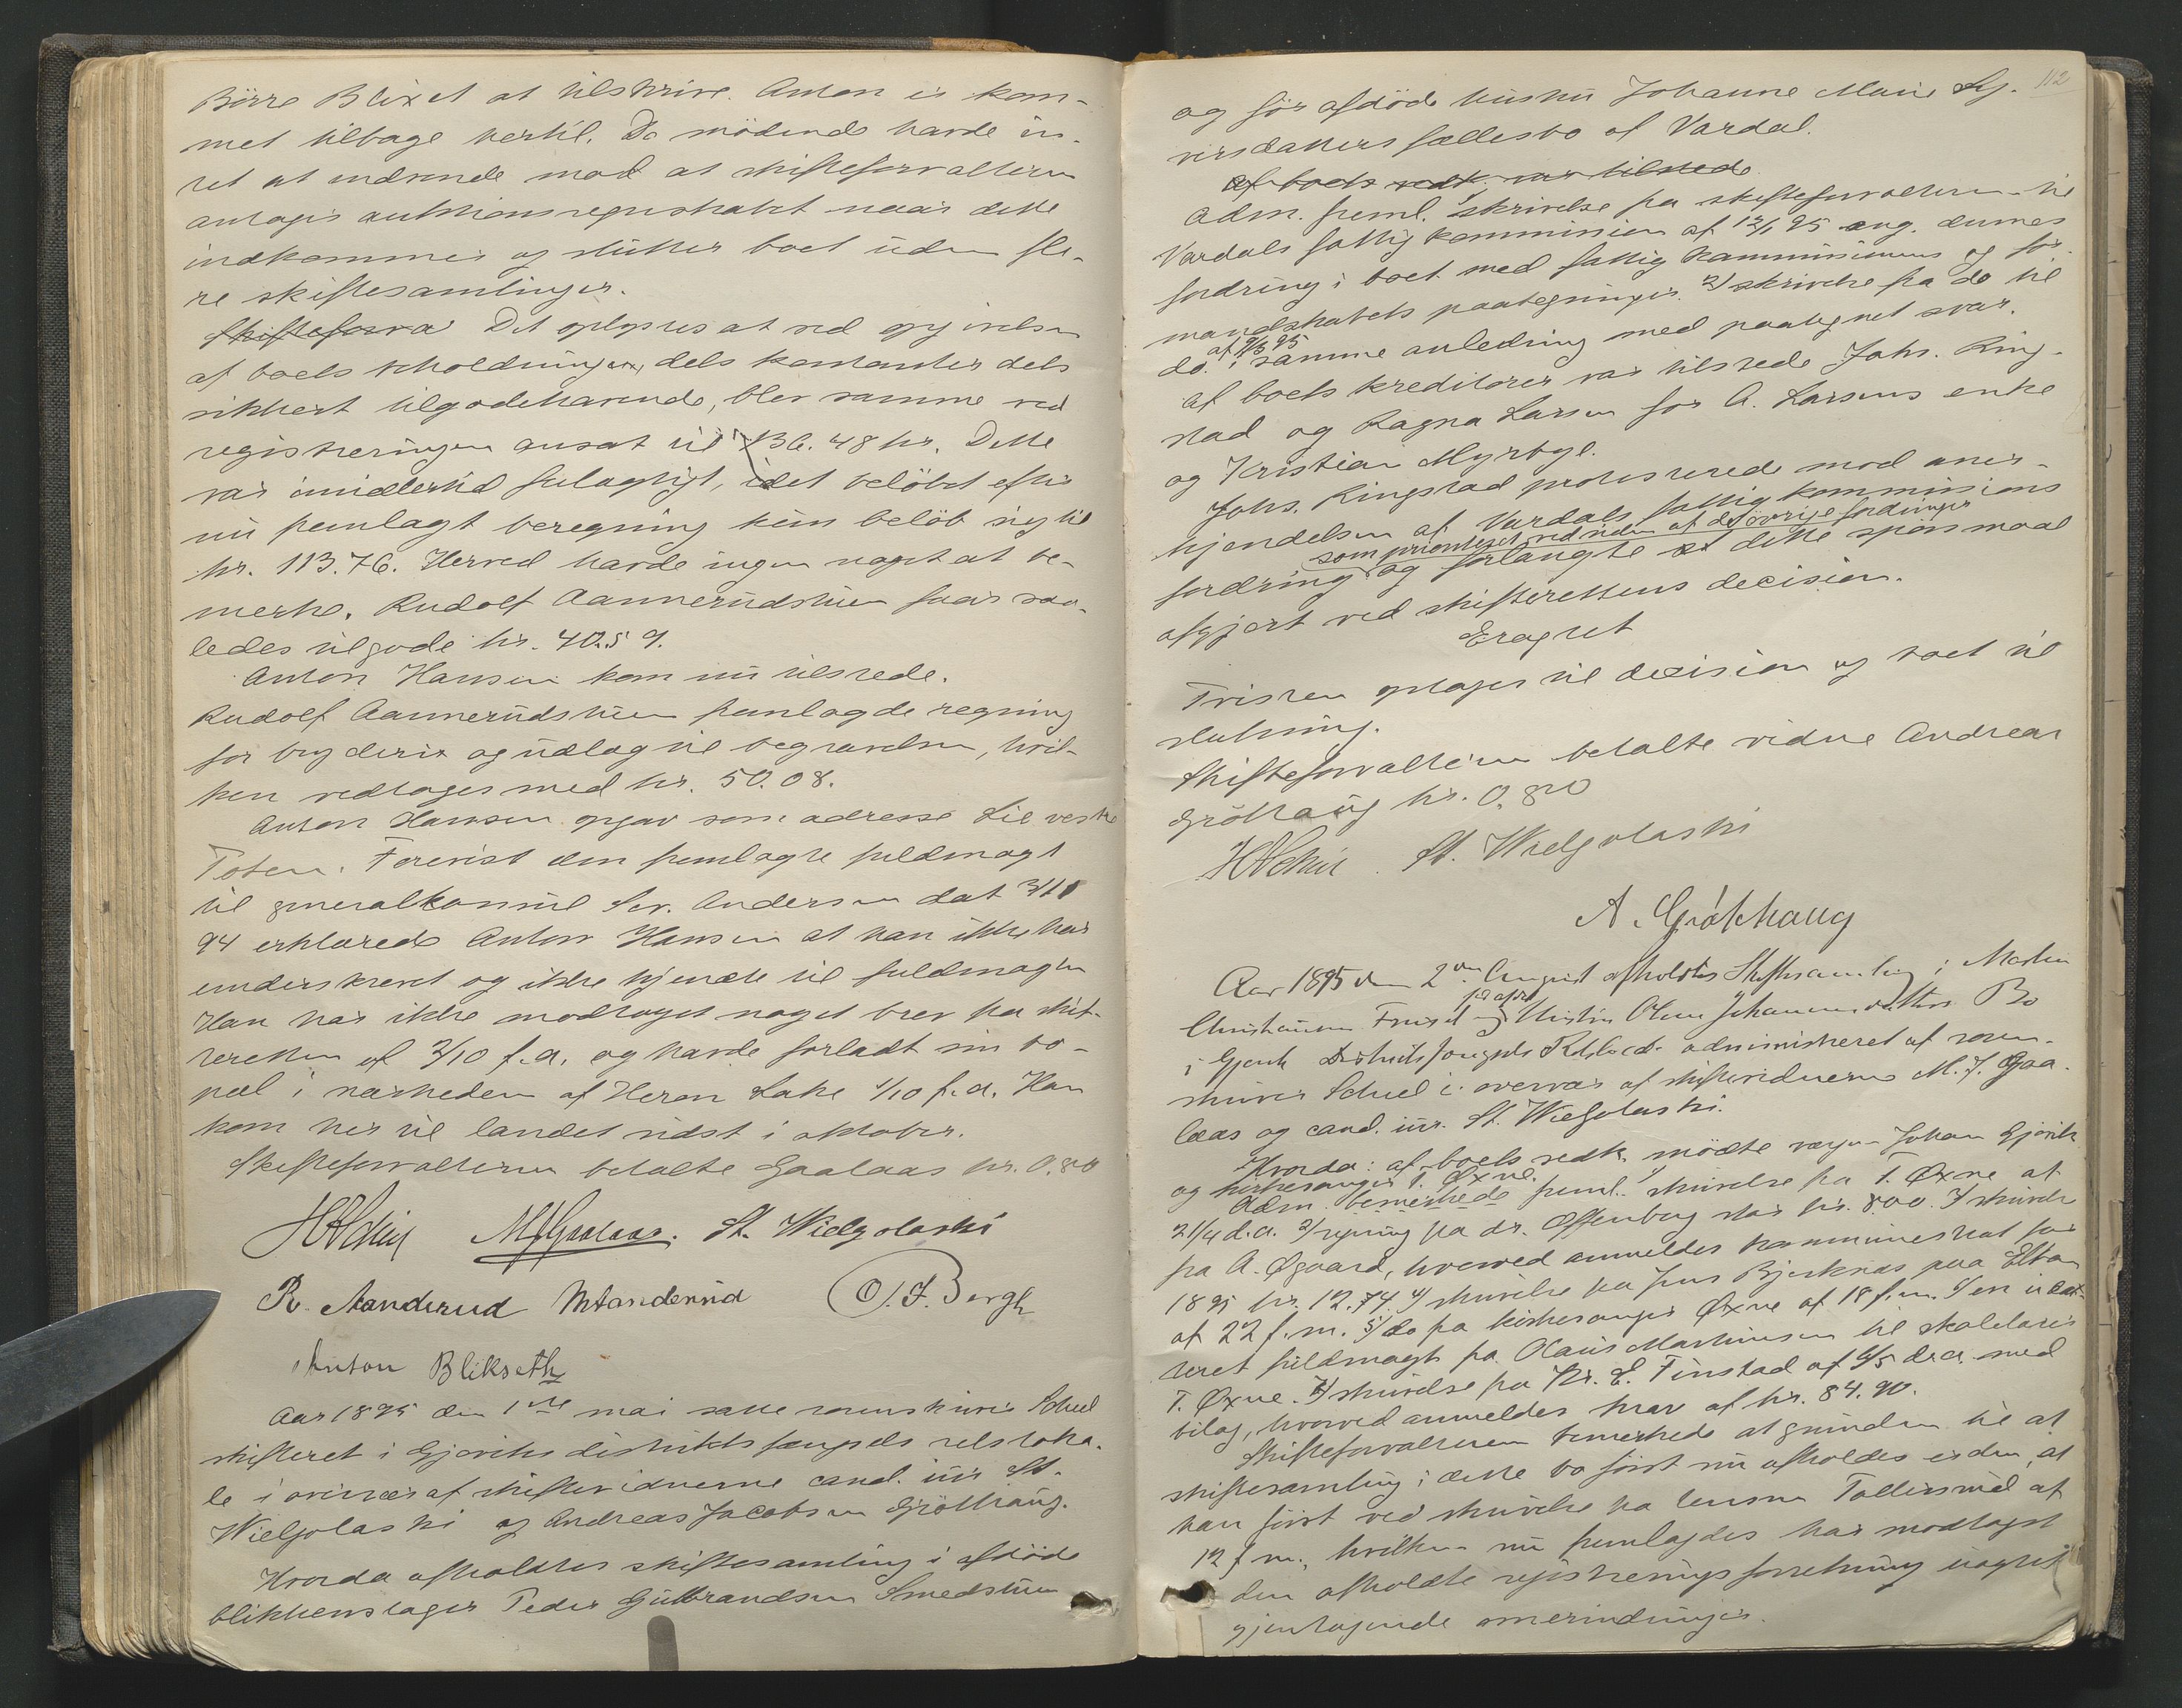 Börre Blixet at tilskrive. Anton er kom-
met tilbage hertil. De mödende havde in-
tet at indvende mod at skifteforvalteren
antager auktionsregnskabet naar dette
indkommer og slutter boet uden fle-
re skiftesamlinger.
Skifteforva Det oplystes at ved opgivelsen
af boets beholdninger, dels kontanter dels
sikkert tilgodehavende, blev samme ved
registreringen ansat til 136.48 kr. Dette
var imidlertid feilagtigt, idet belöbet efter
nu fremlagt beregning kun belöb sig til
kr. 113.76. Herved havde ingen noget at be-
merke. Rudolf Aannerudstuen faar saa-
ledes tilgode kr. 40.59.
Anton Hansen kom nu tilstede.
Rudolf Aannerudstuen fremlagde regning
for bryderi og udlæg til begravelsen, hvil-
ken vedtages med kr. 50.08.
Anton Hansen opgav som adresse Lie vestre
Toten. Forevist den fremlagte fuldmagt
til generalkonsul Sev. Andersen dat 3/11
94 erklærede Anton Hansen at han ikke har
underskrevet og ikke kjendte til fuldmagten
Han har ikke modtaget noget brev fra skif-
teretten af 2/10 f.a. og havde forladt sin bo-
pæl i nærheden af Heron Lake 1/10 f.a. Han
kom her til landet sidst i oktober.
Skifteforvalteren betalte Gaalaas kr. 0.80
HSchiel M J Gaalaas. St. Wielgolaski
R. Aanderud MAanderud O. F. Bergh
Anton Blikseth
Aar 1895 den 1ste mai satte sorenskriver Schiel
skifteret i Gjøviks distriktsfængsels retsloka-
le i overvær af skiftevidnerne cand. jur St.
Wielgolaski og Andreas Jacobsen Gröthaug.
Hvorda afholdtes skiftesamling i afdöde
blikkenslager Peder Gulbrandsen Smedstuen
112
og för afdöde hustru Johanne Marie Sy-
versdatters fællesbo af Vardal.
Af boets vedk. var tilstede
Adm. freml. 1/ skrivelse fra skifteforvalteren til
Vardals fattigkommission af 12/1 95 ang. dennes
fordring i boet med fattigkommissionens og for-
mandskabets paategninger. 2/ skrivelse fra do til
af 9/3 95
do. i samme anledning med paategnet svar.
Af boets kreditorer var tilstede Johs. Ring-
stad og Ragna Larsen for A. Larsens enke
og Kristian Myrbyl.
Johs. Ringstad protesterede mod aner-
kjendelsen af Vardals fattigkommissions
som prioriteret ved siden af de övrige fordringer
fordring og forlangte at dette spörsmaal
afgjort ved skifterettens decision.
Eragtet
Tvisten optages til decision og boet til
slutning.
Skifteforvalteren betalte vidne Andreas
Gröthaug kr. 0.80
HSchiel. St. Wielgolaski
A. Gröthaug
Aar 1895 den 2den August afholdtes Skiftesamling i Martin
før afd.
Christiansen Fruset og Hustru Oline Johannesdatters Bo
i Gjøvik Distriktsfængsels Retslocale administreret af soren-
skriver Schiel i overvær af skiftevidnerne M. J. Gaa-
laas og cand. jur. St. Wielgolaski.
Hvorda: af boets vedk. mödte værgen Johan Gjövik
og kirkesanger T. Øxne.
Adm. bemerkede freml. 1/ skrivelse fra T. Øxne af
21/4 d.a. 2/ regning fra dr. Offenberg stor kr. 8.00. 3/ skrivelse
fra A. Øgaard, hvorved anmeldes kommuneskat for
1895 kr. 12.74. 4/ skrivelse fra Jens Bjerknæs paa Elton
af 22 f.m. 5/ do fra kirkesanger Øxne af 18 f.m. 6/ en udat-
teret fuldmagt fra Olaus Martinsen til skolelærer
T. Øxne. 7/ skrivelse fra Kr. E. Finstad af 4/5 d.a. med
bilag, hvorved anmeldes krav af kr. 84.90.
Skifteforvalteren bemerkede at grunden til at
skiftesamling i dette bo först nu afholdes er den, at
han först ved skrivelse fra lensm Tollersrud af
12 f.m., hvilken nu fremlagdes har modtaget
den afholdte registreringsforretning uagtet
gjentagende omerindringer.